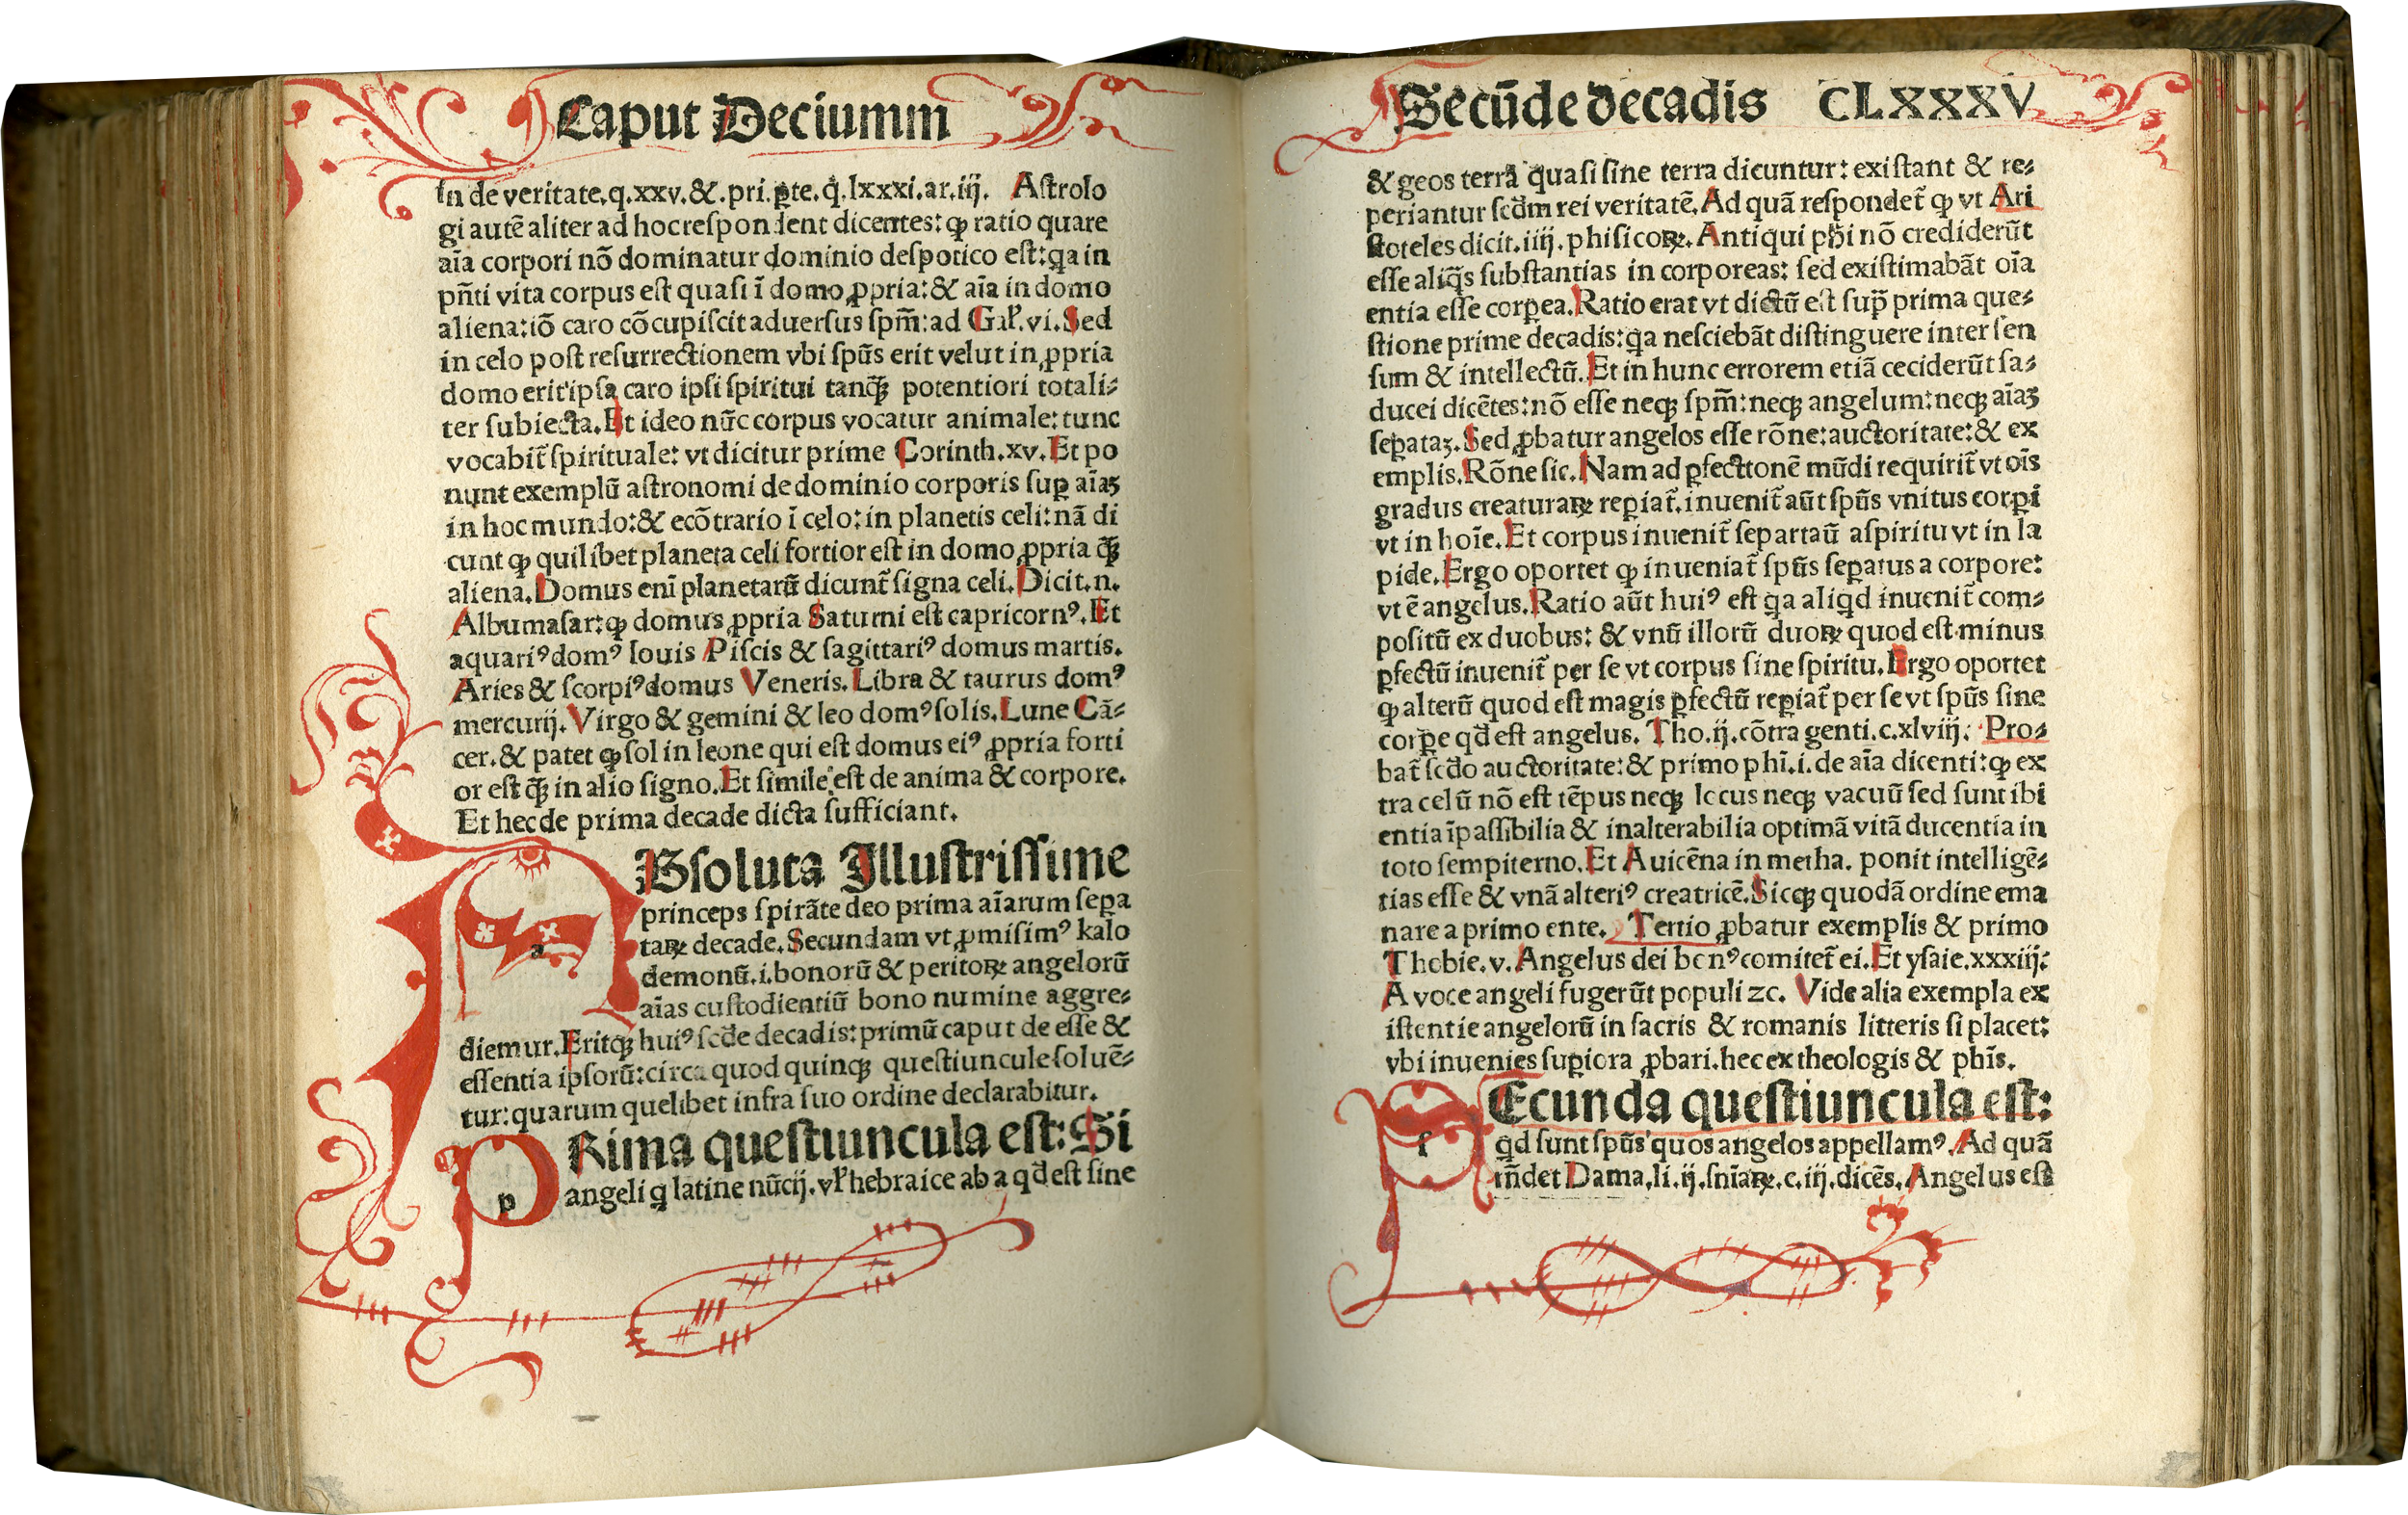 Caput Deciumm
In de veritate.q.xxv.&.pri.ꝑte.q̃.lxxxi.ar.iij. Astrolo
gi autẽ aliter ad hoc respondent dicentes: ꝙ ratio quare
aĩa corpori nõ dominatur dominio despotico est: q̃a in
pñti vita corpus est quasi ĩ domo ꝓpria: & aĩa in domo
aliena: iõ caro cõcupiscit aduersus spm̃: ad Gal̃.vi. Sed
in celo post resurrectionem vbi spũs erit velut in ꝓpria
domo erit ipsa caro ipsi spiritui tanq̃ꝫ potentiori totali⸗
ter subiecta. Et ideo nũc corpus vocatur animale: tunc
vocabit̃ spirituale: vt dicitur prime Corinth.xv. Et po
nunt exemplũ astronomi de dominio corporis suꝑ aĩaꝫ
in hoc mundo: & ecõtrario ĩ celo: in planetis celi: nã di
cunt ꝙ quilibet planeta celi fortior est in domo ꝓpria q̃ꝫ
aliena. Domus enĩ planetarũ dicunt̃ signa celi. Dicit.n.
Albumasar: ꝙ domus ꝓpria Saturni est capricornꝰ. Et
aquariꝰ domꝰ Iouis Piscis & sagittariꝰ domus martis.
Aries & scorpiꝰ domus Veneris. Libra & taurus domꝰ
mercurij. Virgo & gemini & leo domꝰ solis. Lune Cã⸗
cer. & patet ꝙ sol in leone qui est domus eiꝰ ꝓpria forti
or est q̃ꝫ in alio signo. Et simile est de anima & corpore.
Et hec de prima decade dicta sufficiant.
aBsoluta Illustrissime
princeps spirãte deo prima aĩarum seꝑa
taꝝ decade. Secundam vt ꝓmisimꝰ kalo
demonũ.i. bonorũ & peritoꝝ angelorũ
aĩas custodientiũ bono numine aggre⸗
diemur. Eritqꝫ huiꝰ scd̃e decadis: primũ caput de esse &
essentia ipsorũ: circa quod quinqꝫ questiuncule soluẽ⸗
tur: quarum quelibet infra suo ordine declarabitur.
pRima questiuncula est: Si
angeli q̃ latine nũcij. vl̃ hebraice ab a qd̃ est sine
Secũde decadis CLXXXV
& geos terrã quasi sine terra dicuntur: existant & re⸗
periantur scd̃m rei veritatẽ. Ad quã respondet̃ ꝙ vt Ari
stoteles dicit.iiij. phisicoꝝ. Antiqui ph̃i nõ crediderũt
esse aliq̃s substantias in corporeas: sed existimabãt oĩa
entia esse corꝑea. Ratio erat vt dictũ est sup̃ prima que⸗
stione prime decadis: q̃a nesciebãt distinguere inter sen
sum & intellectũ. Et in hunc errorem etiã ceciderũt sa⸗
ducei dicẽtes: nõ esse neqꝫ spm̃: neqꝫ angelum: neqꝫ aĩaꝫ
seꝑataꝫ. Sed ꝓbatur angelos esse rõne: auctoritate: & ex
emplis. Rõne sic. Nam ad ꝑfecttonẽ mũdi requirit̃ vt oĩs
gradus creaturaꝝ reꝑiat̃. inuenit̃ aũt spũs vnitus corꝑi
vt in hoĩe. Et corpus inuenit̃ separtaũ aspiritu vt in la
pide. Ergo oportet ꝙ inueniat̃ spũs seꝑatus a corpore:
vt ẽ angelus. Ratio aũt huiꝰ est q̃a aliq̃d inuenit̃ com⸗
positũ ex duobus: & vnũ illorũ duoꝝ quod est minus
ꝑfectũ inuenit̃ per se vt corpus sine spiritu. Ergo oportet
ꝙ alterũ quod est magis ꝑfectũ reꝑiat̃ per se vt spũs sine
corꝑe qd̃ est angelus. Tho.ij.cõtra genti.c.xlviij. Pro⸗
bat̃ scd̃o auctoritate: & primo phĩ.i.de aĩa dicenti: ꝙ ex
tra celũ nõ est tẽpus neqꝫ locus neqꝫ vacuũ sed sunt ibi
entia ĩpassibilia & inalterabilia optimã vitã ducentia in
toto sempiterno. Et Auicẽna in metha. ponit intelligẽ⸗
tias esse & vnã alteriꝰ creatricẽ. Sicqꝫ quodã ordine ema
nare a primo ente. Tertio ꝓbatur exemplis & primo
Thobie.v. Angelus dei bonꝰ comitet̃ ei. Et ysaie.xxxiij:
A voce angeli fugerũt populi ꝛc. Vide alia exempla ex
istentie angelorũ in sacris & romanis litteris si placet:
vbi inuenies suꝑiora ꝓbari. hec ex theologis & phĩs.
sEcunda questiuncula est:
q̃d sunt spũs quos angelos appellamꝰ. Ad quã
rñdet Dama.li.ij.sñiaꝝ.c.iij.dicẽs. Angelus est